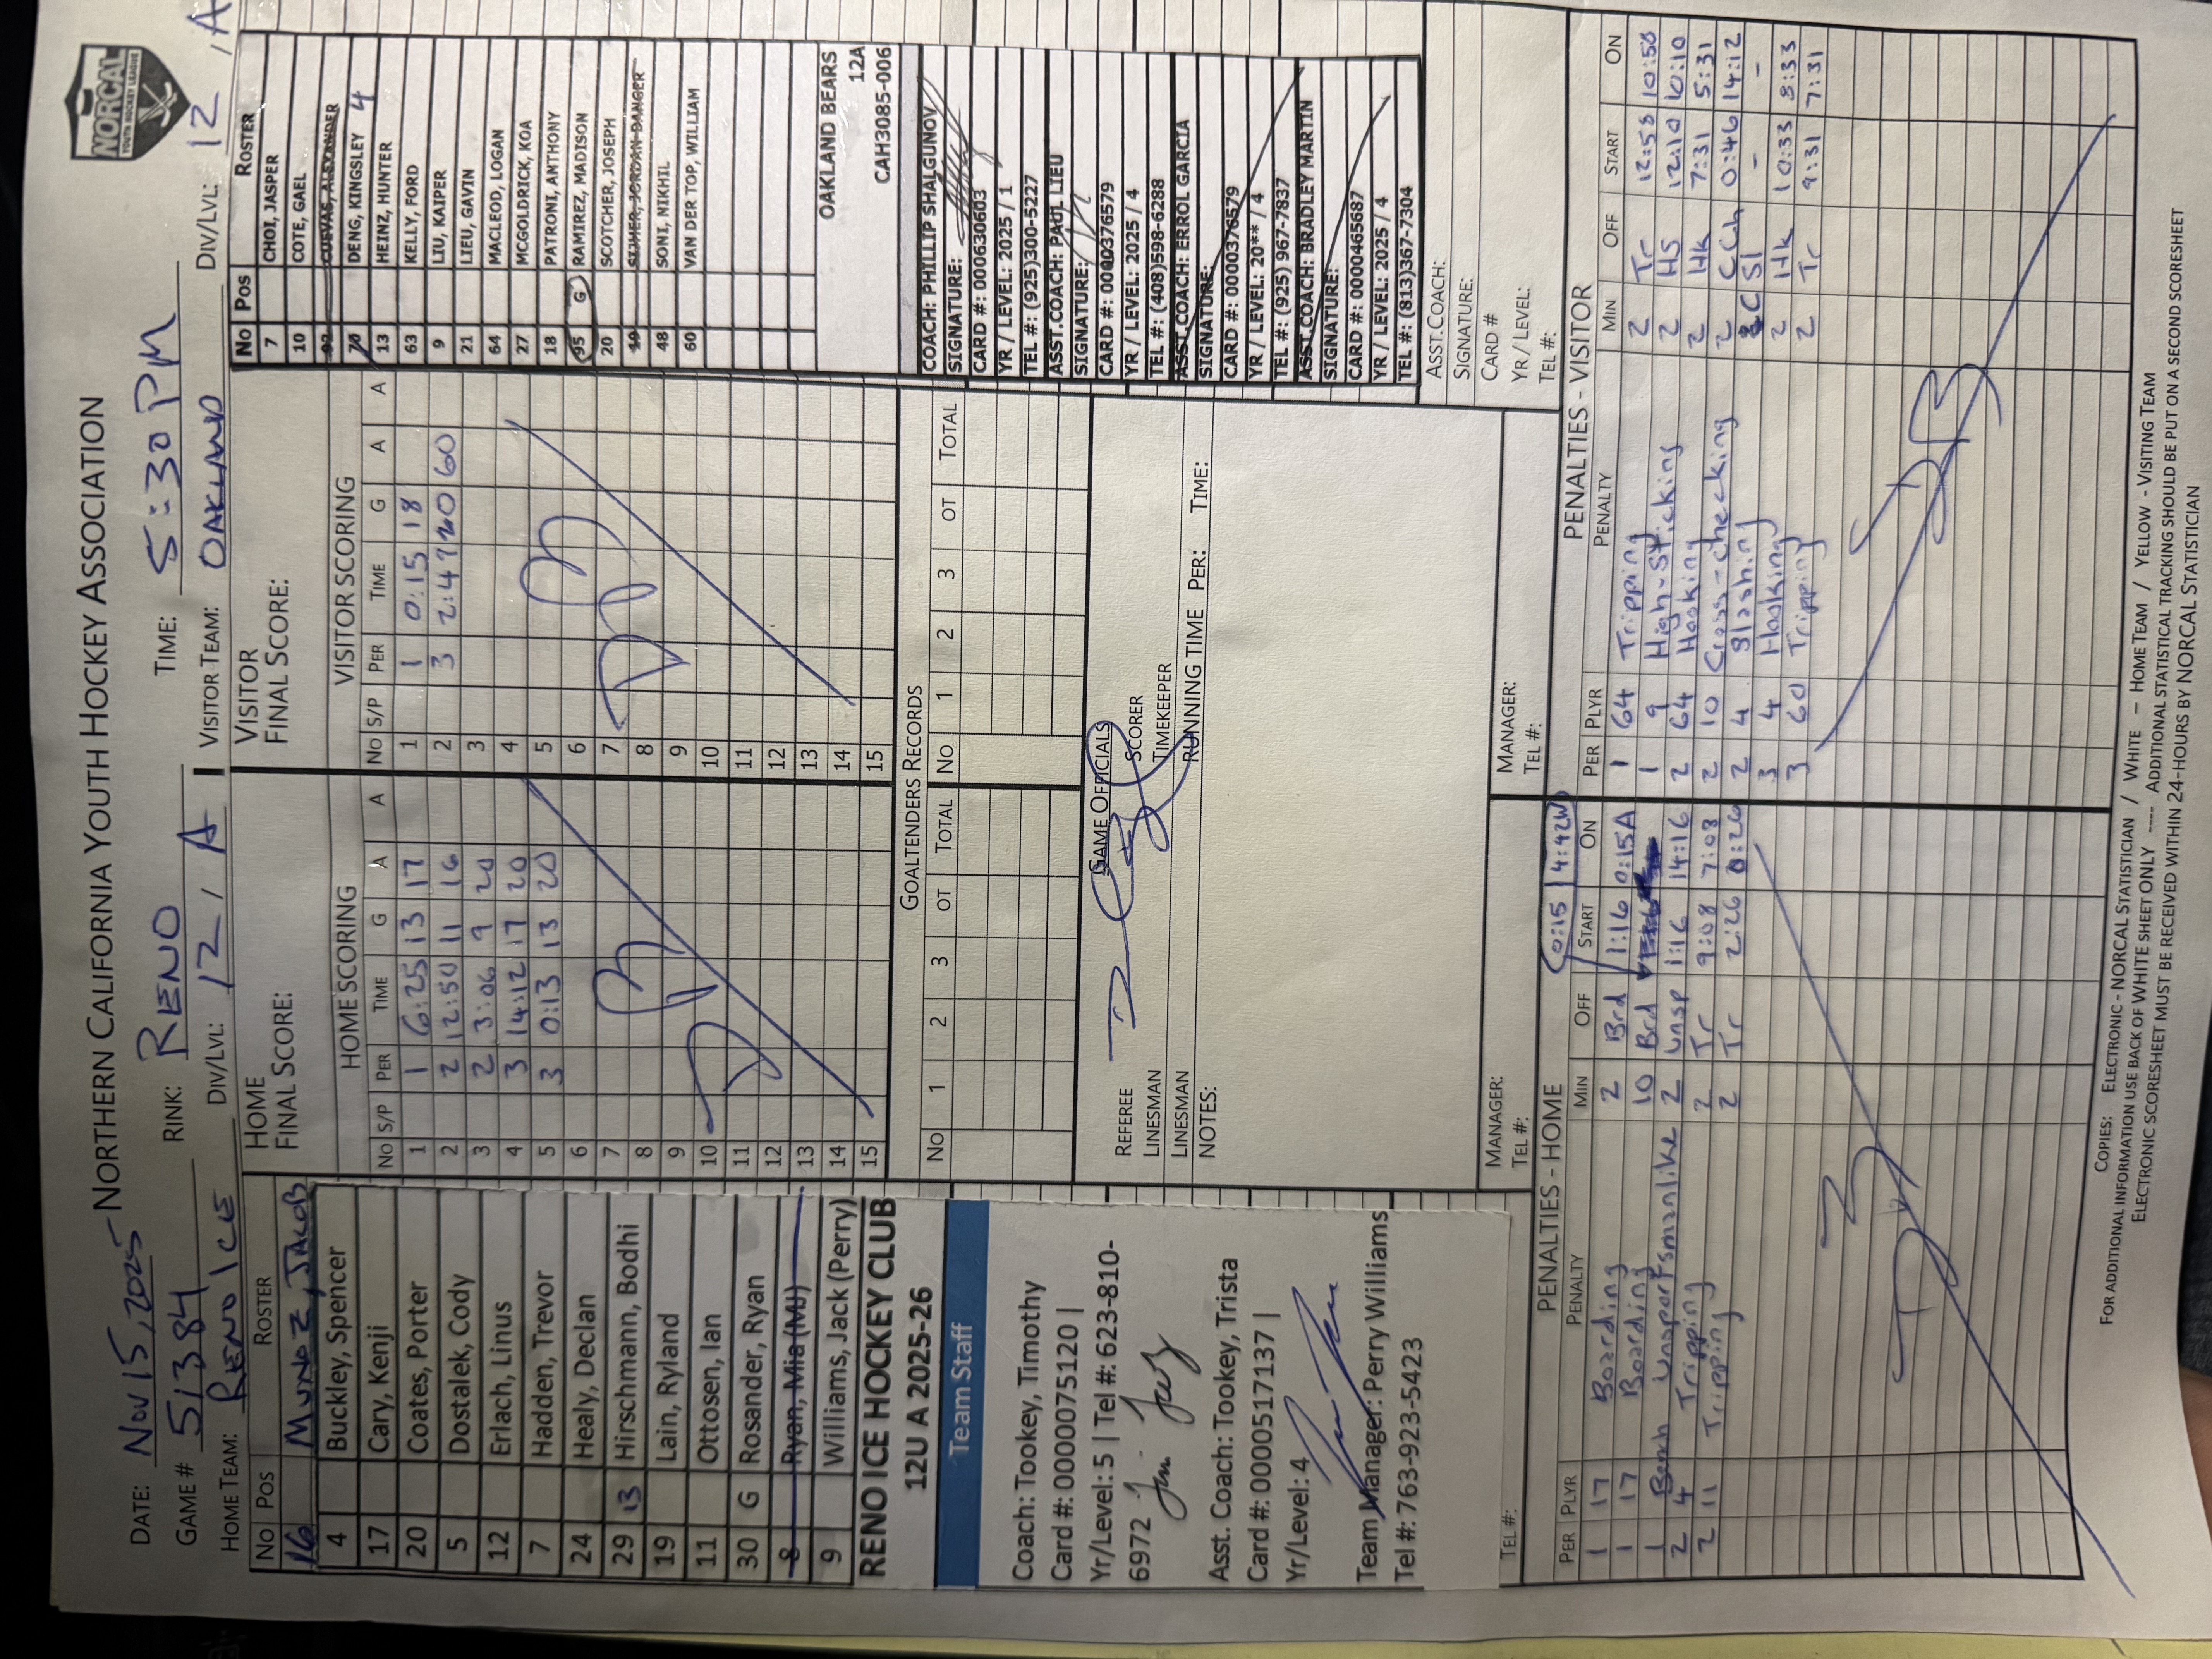 NORTHERN CALIFORNIA YOUTH HOCKEY ASSOCIATION
NORCAL
YOUTH HOCKEY LEAGUE
DATE: NOV 15, 2025
GAME # 51384 RINK: RENO TIME: 5:30 PM
HOME TEAM: RENO ICE DIV/LVL: 12 / A VISITOR TEAM: OAKLAND DIV/LVL: 12 , A
No Pos ROSTER
16 MUNOZ, JACOB
4 Buckley, Spencer
17 Cary, Kenji
20 Coates, Porter
5 Dostalek, Cody
12 Erlach, Linus
7 Hadden, Trevor
24 Healy, Declan
29 13 Hirschmann, Bodhi
19 Lain, Ryland
11 Ottosen, Ian
30 G Rosander, Ryan
8 Ryan, Mia (MJ)
9 Williams, Jack (Perry)
RENO ICE HOCKEY CLUB
12U A 2025-26
Team Staff
Coach: Tookey, Timothy
Card #: 0000075120 |
Yr/Level: 5 | Tel #: 623-810-
6972
Asst. Coach: Tookey, Trista
Card #: 0000517137 |
Yr/Level: 4
Team Manager: Perry Williams
Tel #: 763-923-5423
TEL #:
HOME
FINAL SCORE:
HOME SCORING
No S/P PER TIME G A A
1 1 6:25 13 17
2 2 12:50 11 16
3 2 3:06 9 20
4 3 14:12 17 20
5 3 0:13 13 20
6
7
8
9
10
11
12
13
14
15
VISITOR
FINAL SCORE:
VISITOR SCORING
No S/P PER TIME G A A
1 1 0:15 18
2 3 2:47 20 60
3
4
5
6
7
8
9
10
11
12
13
14
15
No Pos ROSTER
7 CHOI, JASPER
10 COTE, GAEL
92 CUEVAS, ALEXANDER
70 DENG, KINGSLEY 4
13 HEINZ, HUNTER
63 KELLY, FORD
9 LIU, KAIPER
21 LIEU, GAVIN
64 MACLEOD, LOGAN
27 MCGOLDRICK, KOA
18 PATRONI, ANTHONY
95 G RAMIREZ, MADISON
20 SCOTCHER, JOSEPH
19 SIZMER, JORDAN DANGER
48 SONI, NIKHIL
60 VAN DER TOP, WILLIAM
OAKLAND BEARS
12A
CAH3085-006
COACH: PHILLIP SHALGUNOV
SIGNATURE:
CARD #: 000630603
YR / LEVEL: 2025 / 1
TEL #: (925)300-5227
ASST.COACH: PAUL LIEU
SIGNATURE:
CARD #: 0000376579
YR / LEVEL: 2025 / 4
TEL #: (408)598-6288
ASST.COACH: ERROL GARCIA
SIGNATURE:
CARD #: 0000376579
YR / LEVEL: 20** / 4
TEL #: (925) 967-7837
ASST.COACH: BRADLEY MARTIN
SIGNATURE:
CARD #: 0000465687
YR / LEVEL: 2025 / 4
TEL #: (813)367-7304
ASST.COACH:
SIGNATURE:
CARD #
YR / LEVEL:
TEL #:
GOALTENDERS RECORDS
No 1 2 3 OT TOTAL No 1 2 3 OT TOTAL
GAME OFFICIALS
REFEREE SCORER
LINESMAN TIMEKEEPER
LINESMAN RUNNING TIME PER: TIME:
NOTES:
MANAGER:
TEL #:
MANAGER:
TEL #:
PENALTIES - HOME
0:15 4:42
PER PLYR PENALTY MIN OFF START ON
1 17 Boarding 2 Brd 1:16 0:15A
1 17 Boarding 10 Brd
1 Bench Unsportsmanlike 2 Unsp 1:16 14:16
2 4 Tripping 2 Tr 9:08 7:08
2 11 Tripping 2 Tr 2:26 0:26
PENALTIES - VISITOR
PER PLYR PENALTY MIN OFF START ON
1 64 Tripping 2 Tr 12:58 10:58
1 9 High-sticking 2 HS 12:10 10:10
2 64 Hooking 2 Hk 7:31 5:31
2 10 Cross-checking 2 CCh 0:46 14:12
2 4 Slashing Sl - -
3 4 Hooking 2 Hk 10:33 8:33
3 60 Tripping 2 Tr 9:31 7:31
COPIES: ELECTRONIC - NORCAL STATISTICIAN / WHITE – HOME TEAM / YELLOW - VISITING TEAM
FOR ADDITIONAL INFORMATION USE BACK OF WHITE SHEET ONLY ---- ADDITIONAL STATISTICAL TRACKING SHOULD BE PUT ON A SECOND SCORESHEET
ELECTRONIC SCORESHEET MUST BE RECEIVED WITHIN 24-HOURS BY NORCAL STATISTICIAN